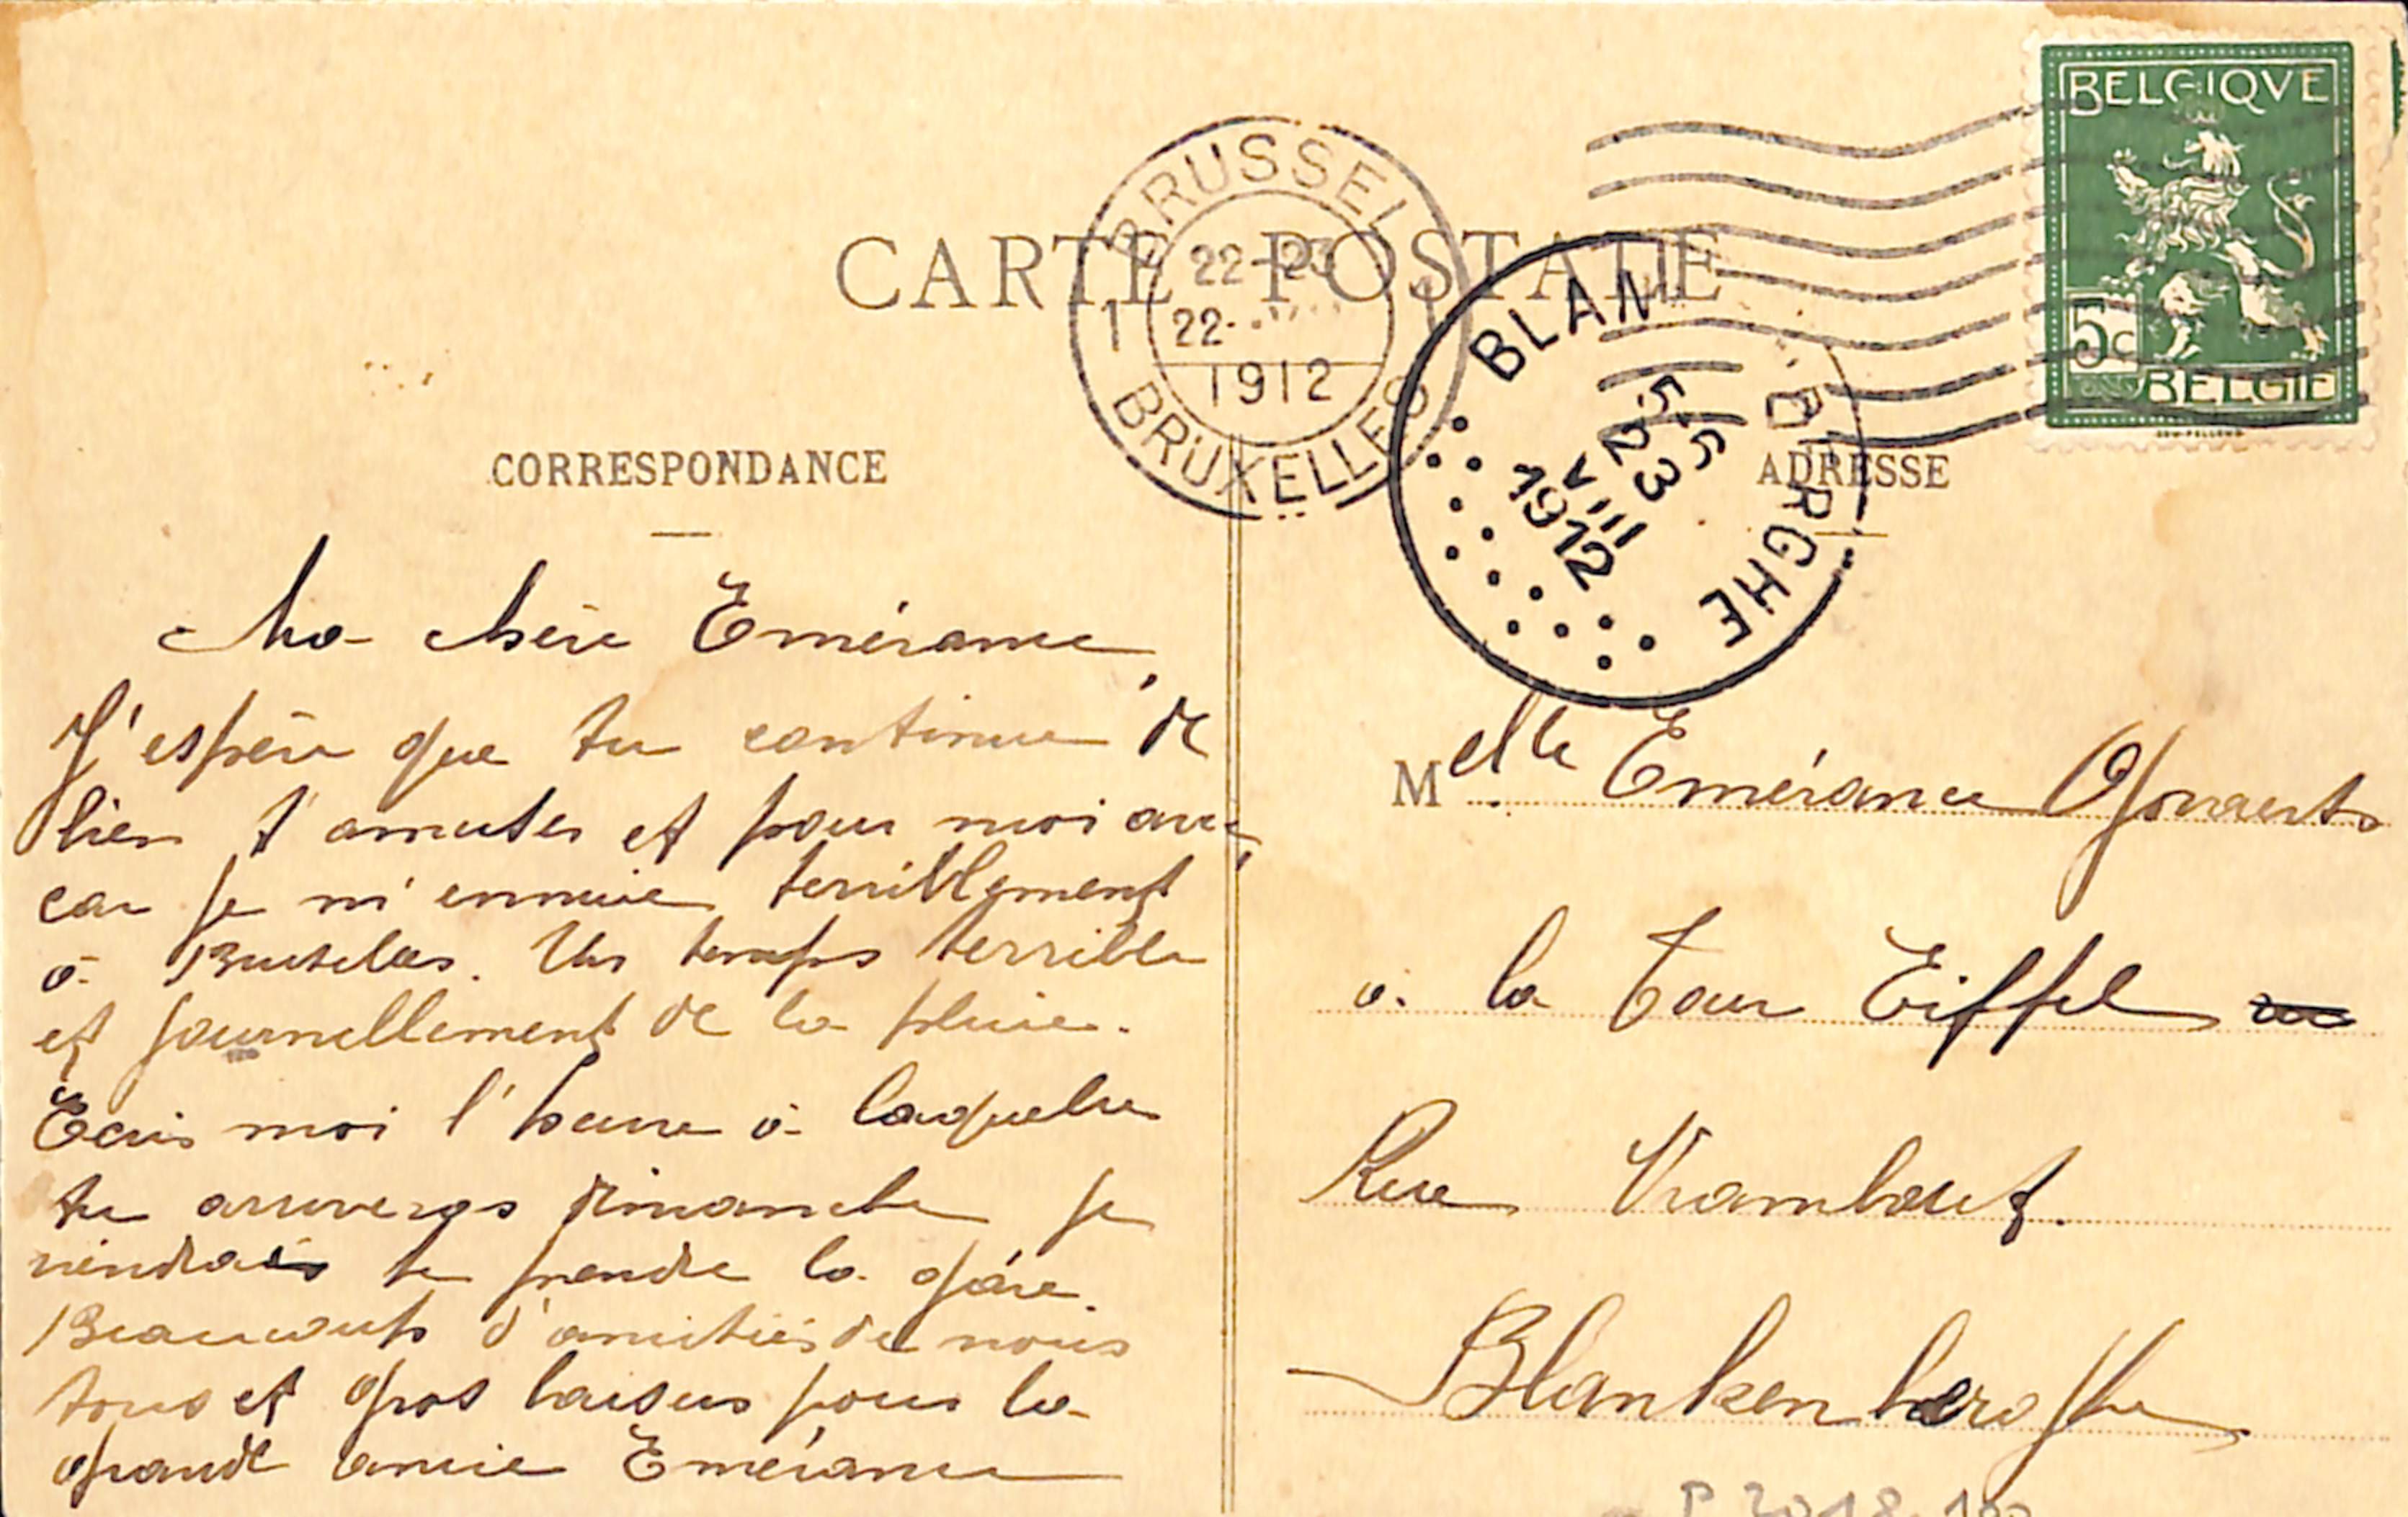 BELGIQVE
5c
BELGIE
BRUSSEL
22-23
1 22- 1
1912
BRUXELLES
CARTE POSTALE
BLAN BERGHE
5-S
23
VIII
1912
CORRESPONDANCE
Ma chère Emérance,
J'espère que tu continue de
bien t'amuser et pour moi avec,
car je m'ennuie terriblement
à Bruxelles. Un temps terrible
et journellement de la pluie.
Ecris moi l'heure à laquelle
tu arriveras dimanche je
viendrais te prendre la gare.
Beaucoup d'amitiés de nous
tous et gros baisers pour la
grande amie Emérance
ADRESSE
Melle Emérance
à la Tour Eiffel
Rue Vrambout.
Blankenberghe
P 2018.100